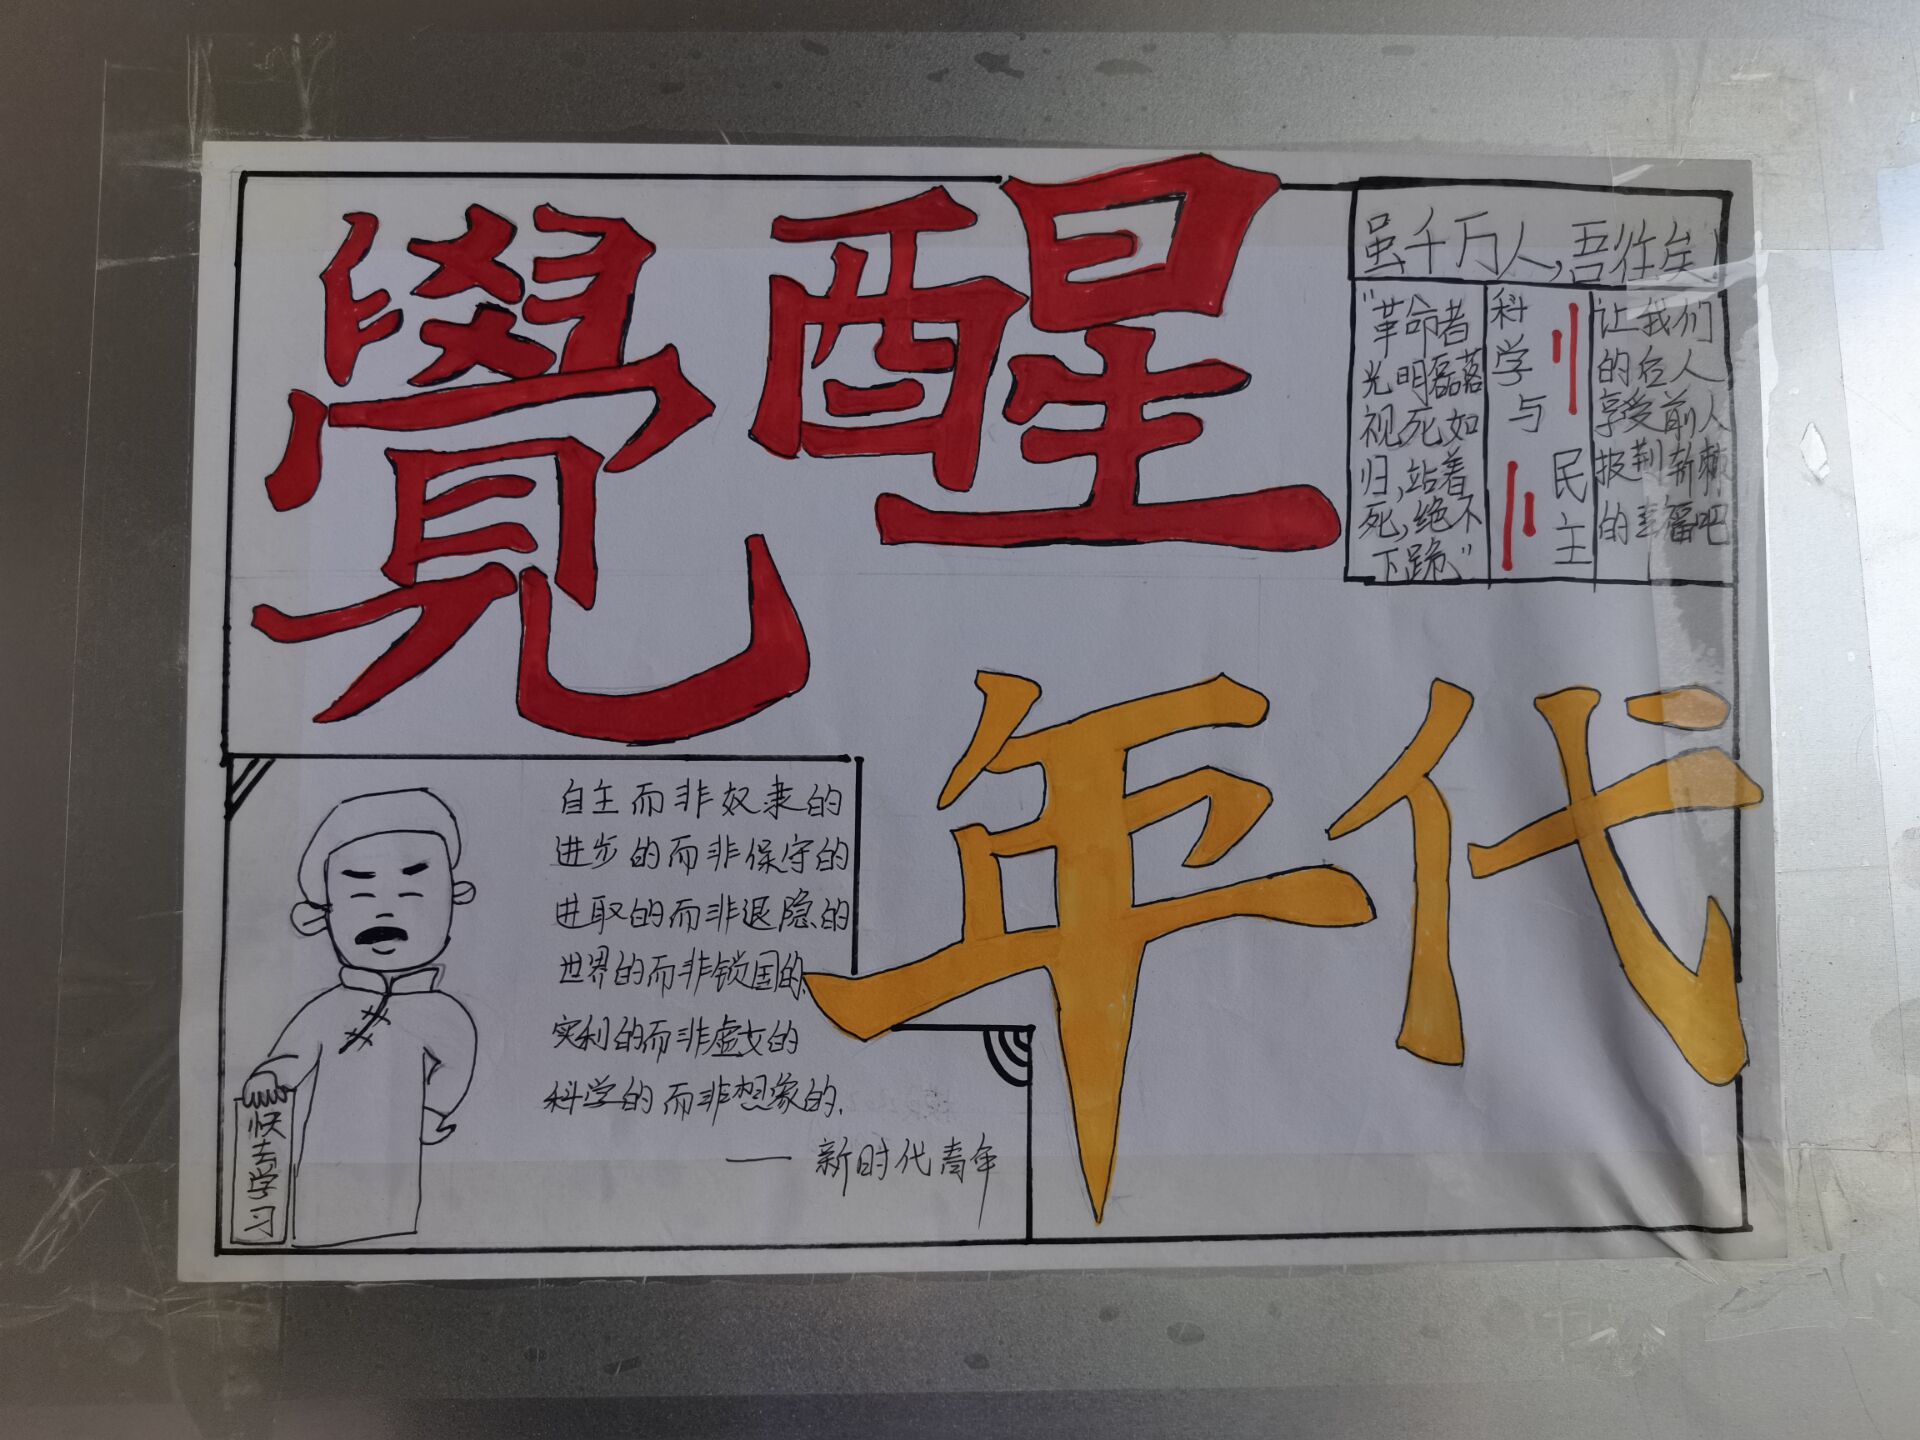 覺醒
年代
虽千万人,吾往矣!
"革命者
光明磊落
视死如
归,站着
死,绝不
下跪"
科学与
民主
让我们
的后人
享受前人
披荆斩棘
的幸福吧
自主而非奴隶的
进步的而非保守的
进取的而非退隐的
世界的而非锁国的
实利的而非虚文的
科学的而非想象的.
——新时代青年
快去学习